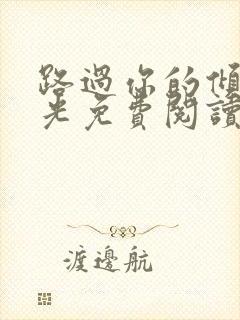 路過你的傾
光免費閱讀
渡邊航